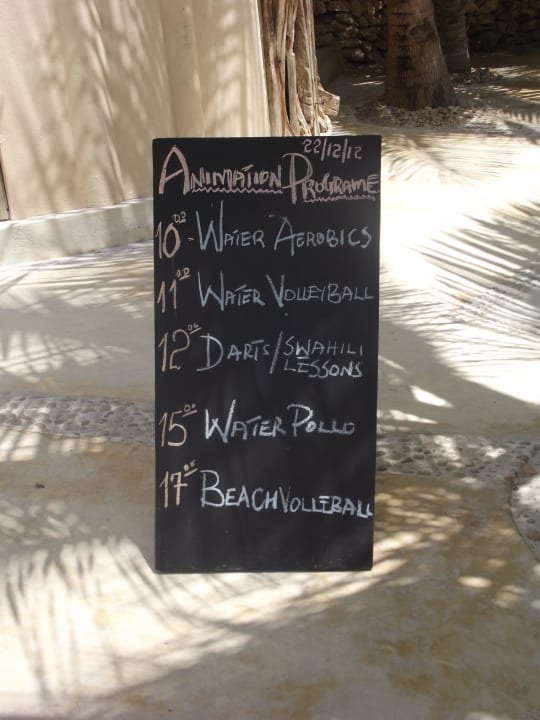 22/12/12
ANIMATION PROGRAME
10⁰⁰ - WATER AEROBICS
11⁰⁰ WATER VOLLEYBALL
12⁰⁰ DARTS/SWAHILI
LESSONS
15⁰⁰ WATER POLLO
17⁰⁰ BEACHVOLLEBALL